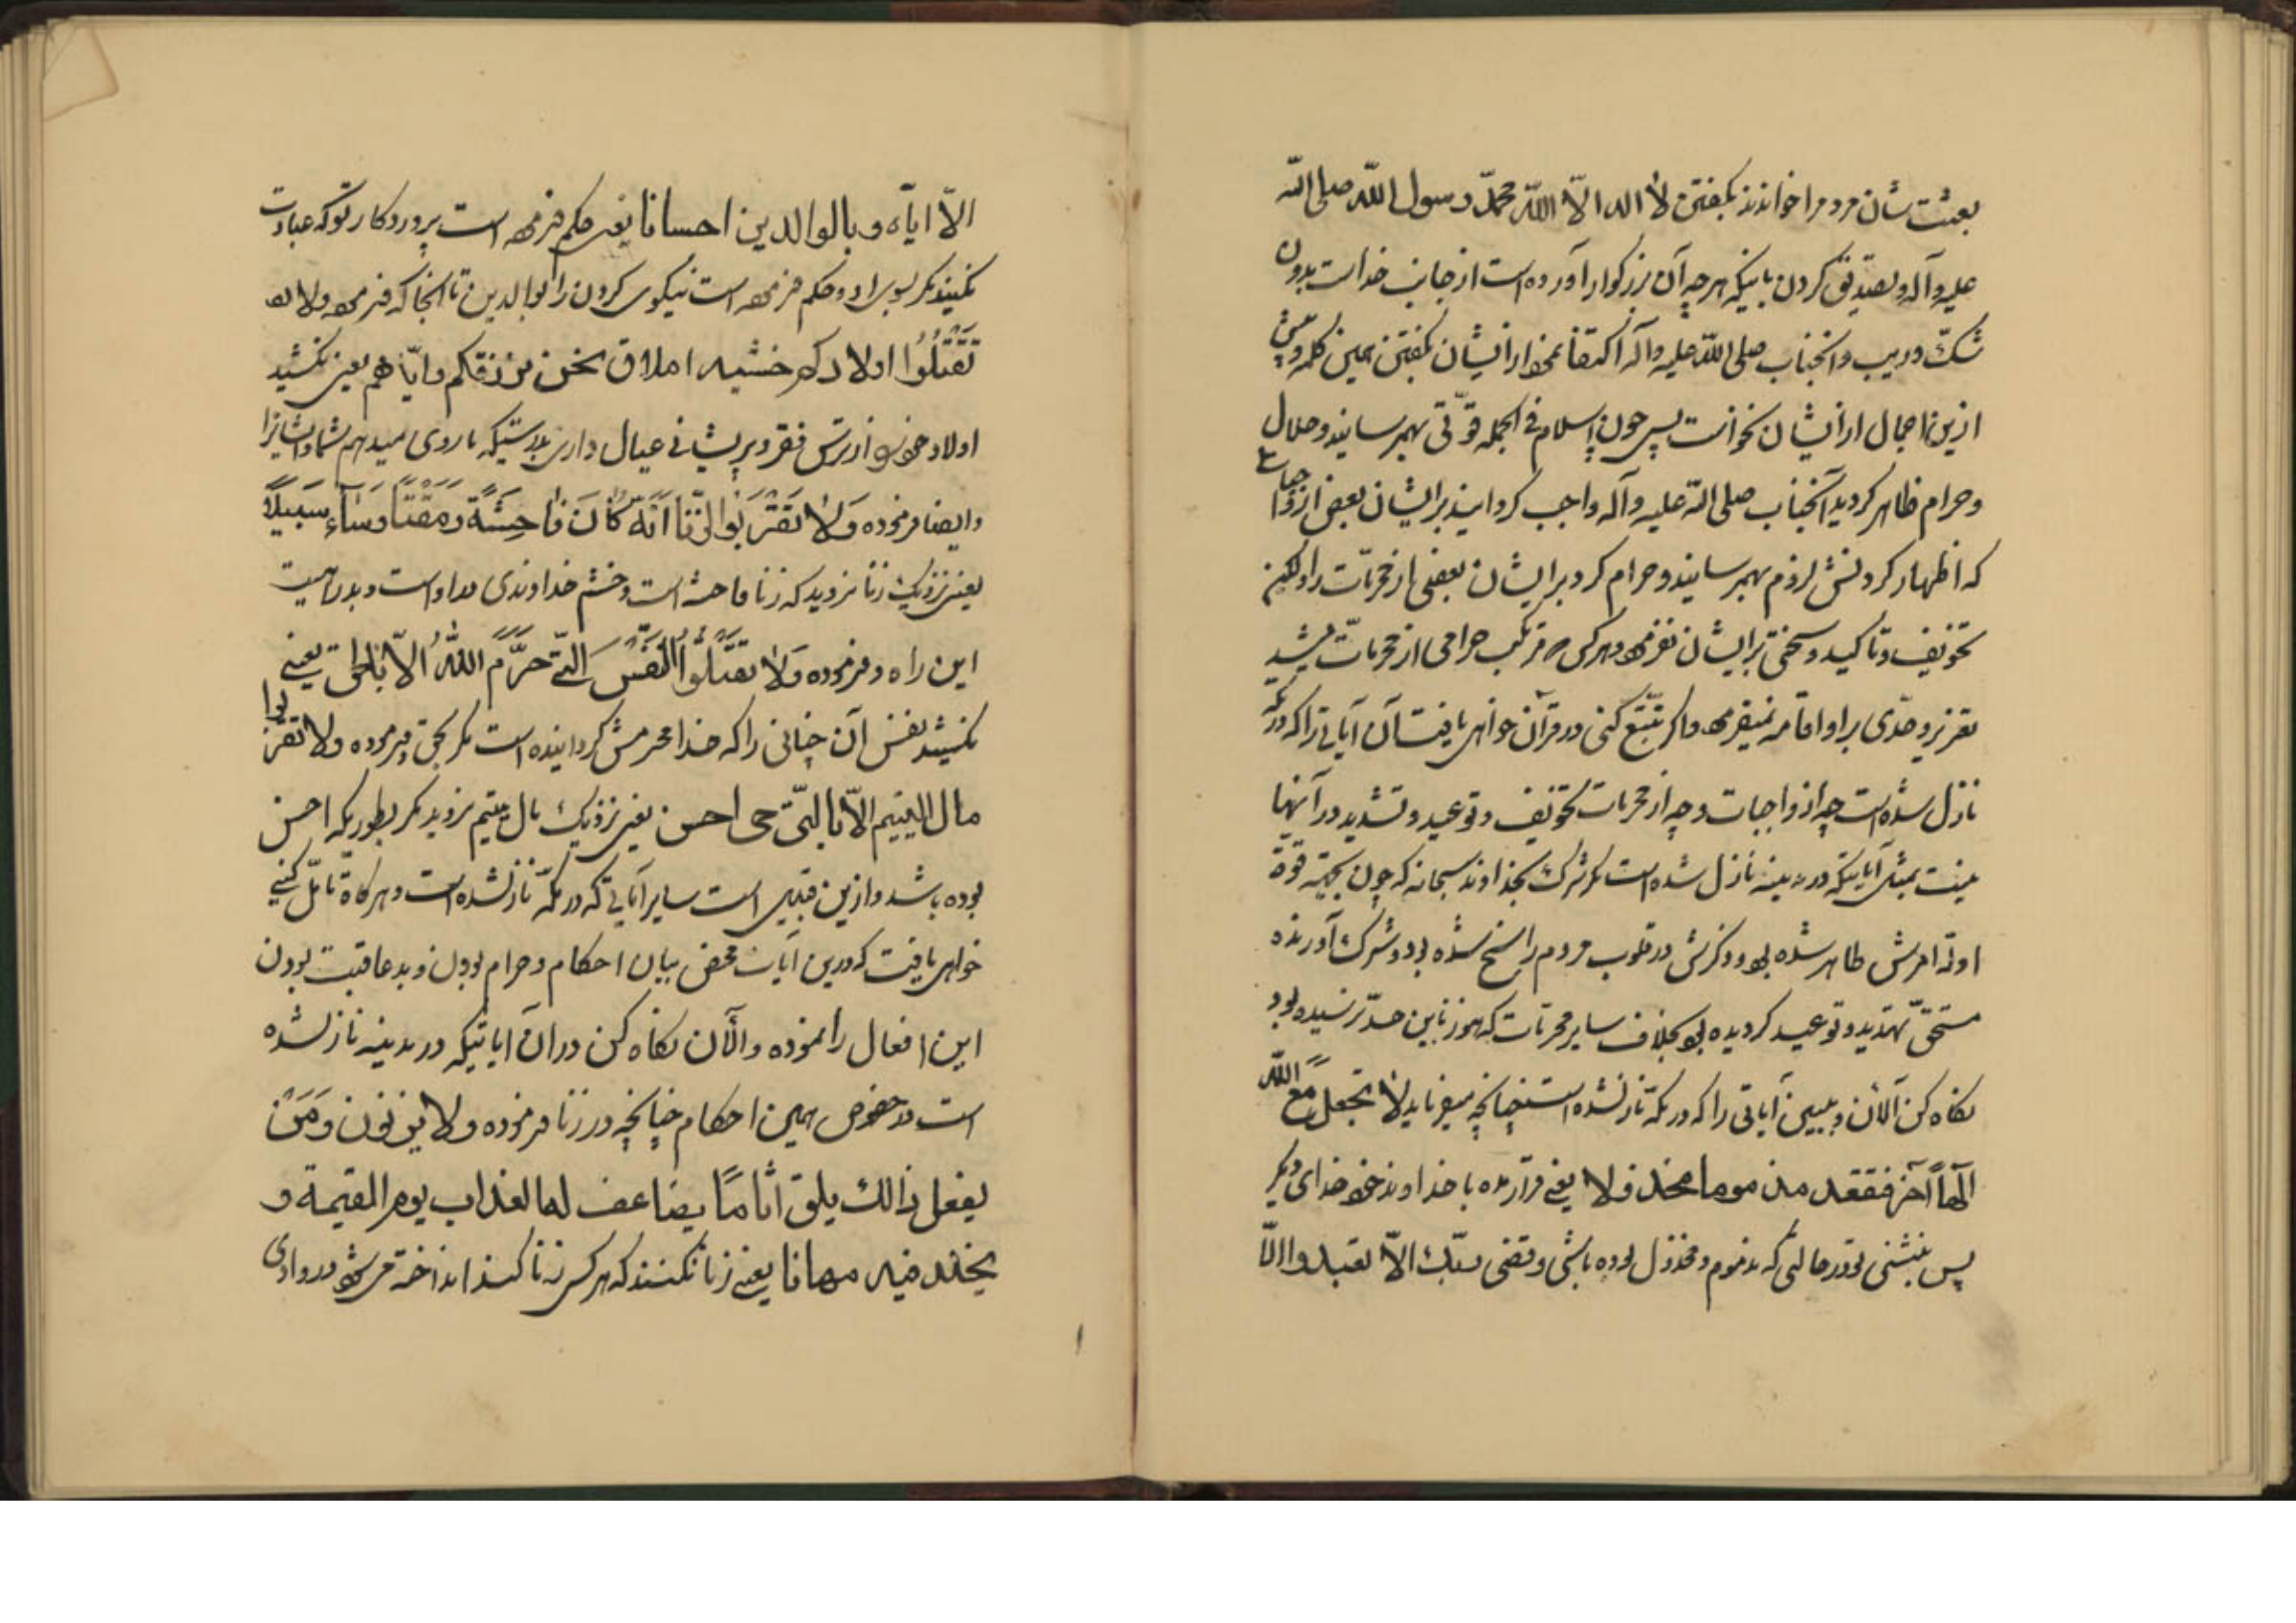 بعثت شان مردم را خواندند بگفتن لا اله الا اللّه محمّد رسول اللّه صلی اللّه
علیه و آله و بتصدیق کردن باینکه هر چه آن بزرگوار آورده است از جانب خداست بدون
شکّ و ریب و آنجناب صلی اللّه علیه و آله اکتفا نمود از ایشان بگفتن همین کلمه و بیش
ازین اجمال از ایشان نخواست پس چون اسلام فی الجمله قوّتی بهم رسانید و حلال
و حرام ظاهر گردید آنجناب صلی اللّه علیه و آله واجب گردانید بر ایشان بعض از واجبات
که اظهار کردنش لزوم بهم رسانید و حرام کرد بر ایشان بعضی از محرّمات را و لیکن
تخویف و تاکید و سختی بر ایشان نفرمود و هر کس مرتکب حرامی از محرمات میشد
تعزیر و حدّی بر او اقامه نمیفرمود و اگر تتبّع کنی در قرآن خواهی یافت آن آیاتی را که در مکّه
نازل شده است چه از واجبات و چه از محرمات تخویف و توعید و تشدید در آنها
نیست بمثل آیاتیکه در مدینه نازل شده است مگر شرک بخداوند سبحانه که چون بجهته قوة
ادلّه امرش ظاهر شده بود و ذکرش در قلوب مردم راسخ شده بود و شرک آورنده
مستحقّ تهدید و توعید گردیده بود بخلاف سایر محرمات که هنوز باین حدّ نرسیده بود
نگاه کن الآن و ببین آیاتی را که در مکّه نازلشده است چنانچه میفرماید لا تجعل مع اللّه
الٰهاً آخر فتقعد مذموما مخذولا یعنی قرار مده با خداوند خود خدای دیگر
پس بنشنی تو در حالتی که مذموم و مخذول بوده باشی و قضی ربّک الاّ تعبدوا الّا
الاّ ایّاه و بالوالدین احسانا یعنی حکم فرموده است پروردگار تو که عبادت
نکنید مگر بسوی او و حکم فرموده است نیکوی کردن را بوالدین تا آنجا که فرموده و لا تق
تَقْتُلُوا اولادکم خشیه املاق نحن نرزقکم و ایّاهم یعنی نکشید
اولاد خود را از ترس فقر و پریشانی عیال داری بدرستیکه ما روزی میدهم شما و ایشانرا
و ایضا فرموده وَلا تَقْرَبُوا الزِّنا اَنَّهُ کٰانَ فاحِشَةً وَ مَقْتاً وَ سٰاءَ سَبیلاً
یعنی نزدیک زنا نروید که زنا فاحشه است و خشم خداوندی در او است و بد راهیست
این راه و فرموده وَلا تَقْتُلُوا النَّفْسَ الَّتی حَرَّمَ اللّٰهُ الاّ بالحق یعنی
نکشید نفس آن چنانی را که خدا محرمش گردانیده است مگر بحق و فرموده و لا تقربوا
مال الیتیم الاّ بالتّی هی احسن یعنی نزدیک مال یتیم نروید مگر بطوریکه احسن
بوده باشد و ازین قبیل است سایر آیاتی که در مکّه نازلشده است و هر گاه تامّل کنی
خواهی یافت که درین آیات محض بیان احکام و حرام بودن و بد عاقبت بودن
این افعال را نموده و الآن نگاه کن در آن آیاتیکه در مدینه نازلشده
است در خصوص همین احکام چنانچه در زنا فرموده و لا یزنون وَ مَنْ
یفعل ذالک یلق اثاماً یضاعف له العذاب یوم القیمة و
یخلد فیه مهانا یعنی زنا نکنند که هر کس زنا کند انداخته میشود در وادی